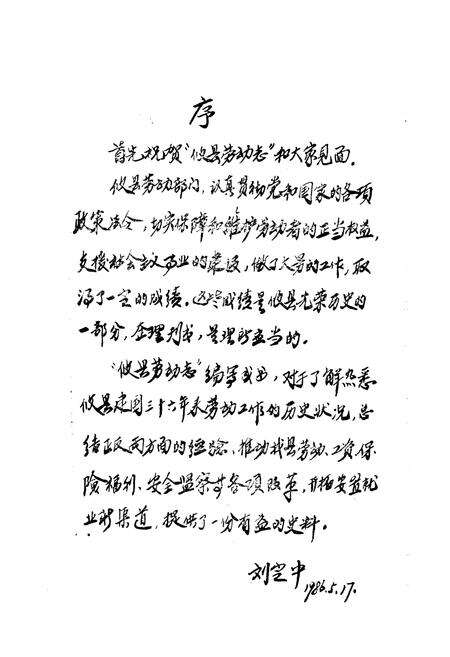 序
首先祝贺“攸县劳动志”和大家见面。
攸县劳动部门,认真贯彻党和国家的各项
政策法令,切实保障和维护劳动者的正当权益,
支援社会主义事业的建设,做了大量的工作,取
得了一定的成绩。这些成绩是攸县光荣历史的
一部分,应理列书,是理所应当的。
“攸县劳动志”编写成册,对于了解熟悉
攸县建国三十六年来劳动工作的历史状况,总
结正反两方面的经验、推动我县劳动、工资、保
险福利、安全监察等各项改革,开拓安置就
业新渠道,提供了一份有益的史料。
刘定中
1986.5.17.